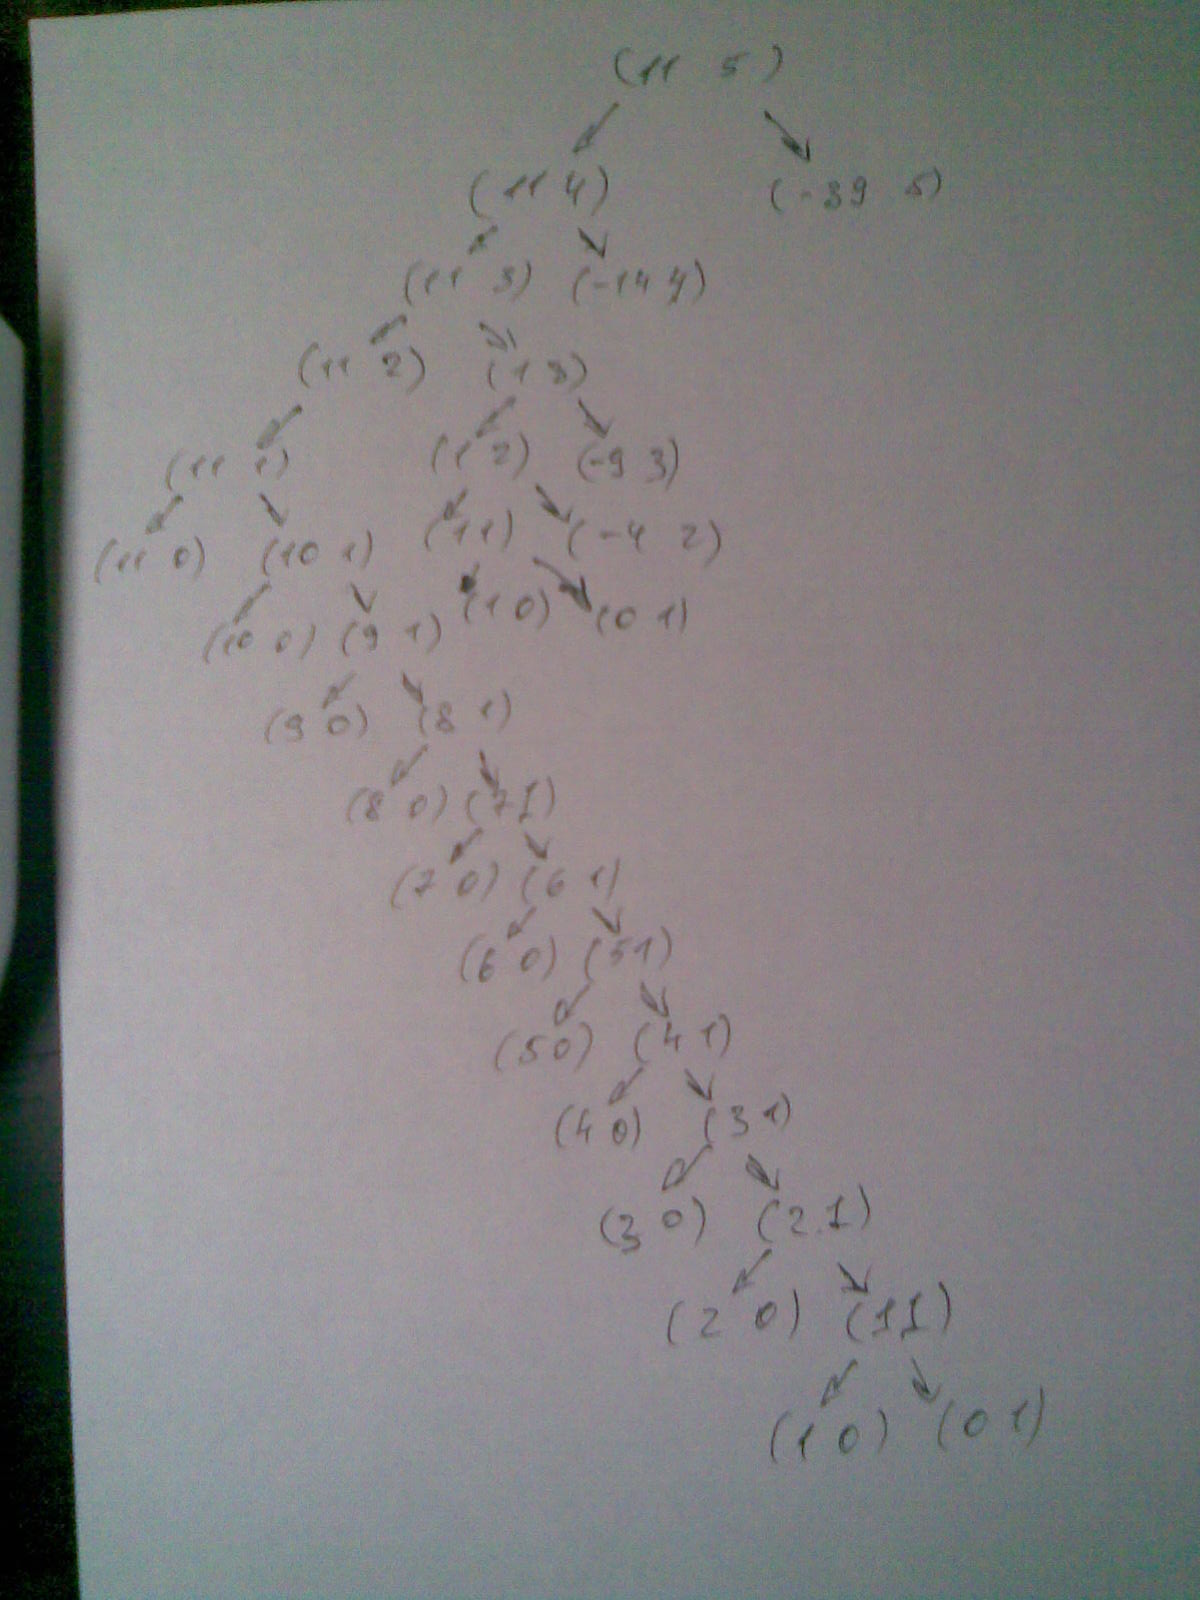 (11 5)
(11 4) (-39 5)
(11 3) (-14 4)
(11 2) (1 3)
(11 1) (1 2) (-9 3)
(11 0) (10 1) (1 1) (-4 2)
(10 0) (9 1) (1 0) (0 1)
(9 0) (8 1)
(8 0) (7 1)
(7 0) (6 1)
(6 0) (5 1)
(5 0) (4 1)
(4 0) (3 1)
(3 0) (2 1)
(2 0) (1 1)
(1 0) (0 1)